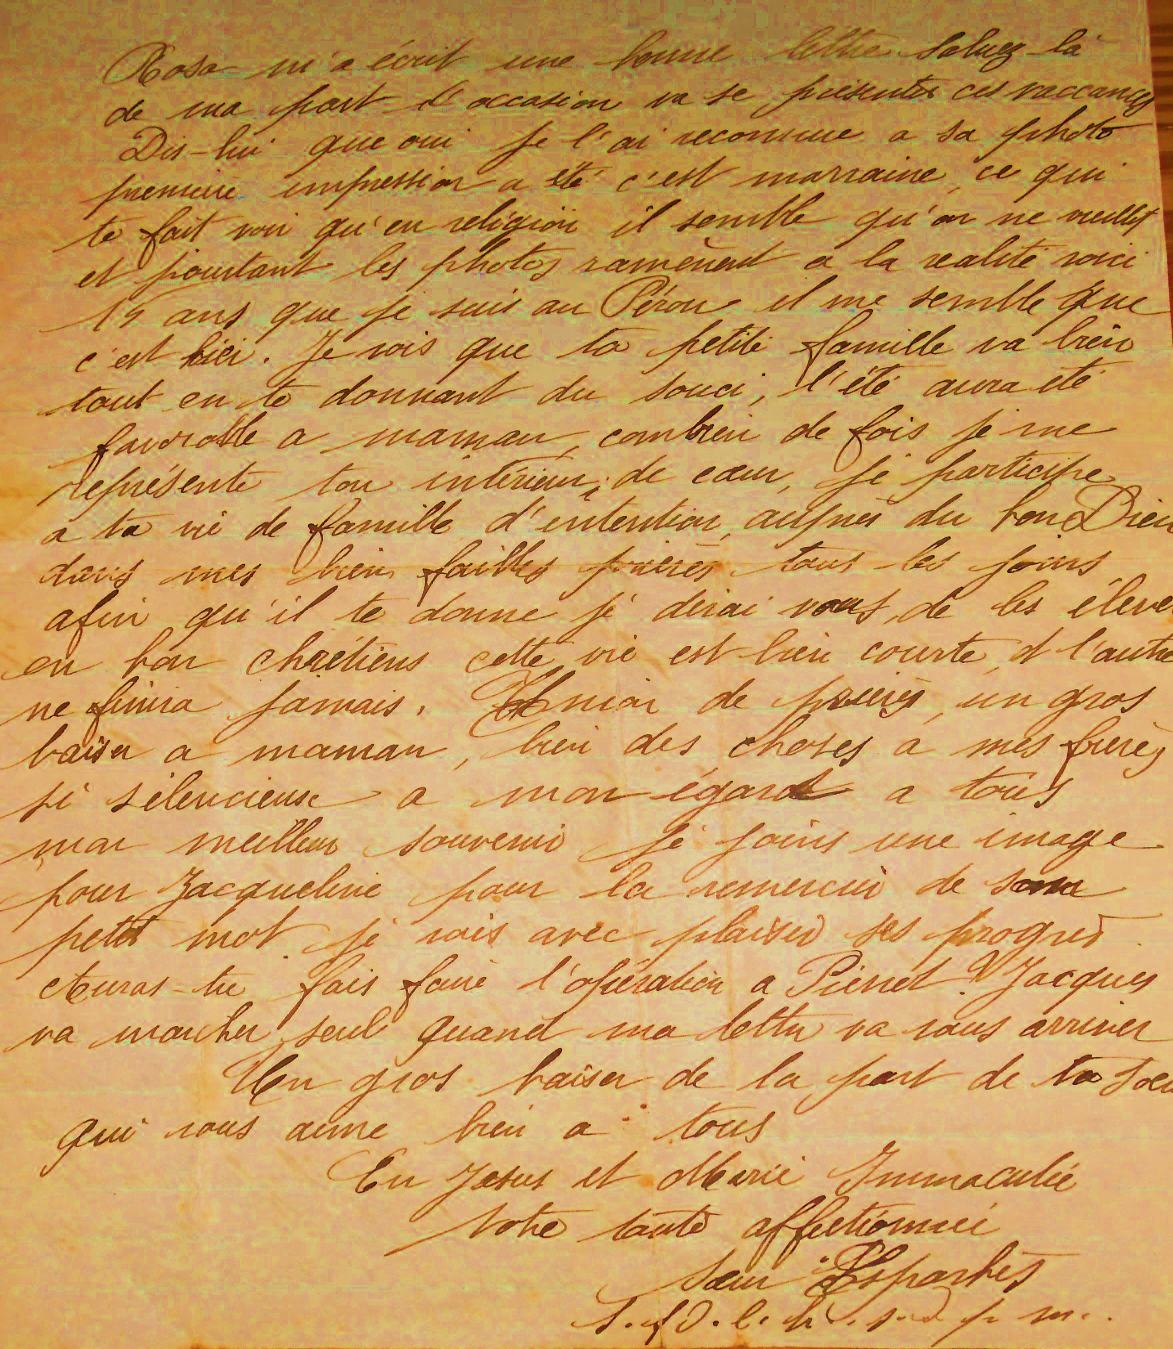 Rosa m'a écrit une bonne lettre saluez-la
de ma part l'occasion va se présenter ces vaccances
Dis-lui que oui je l'ai reconnue a sa photo
premiere impression a été c'est marraine, ce qui
te fait voir qu'en religion il semble qu'on ne vieillit
et pourtant les photos ramènent a la realité voici
ans que je suis au Pérou il me semble que
c'est hier. Je vois que ta petite famille va bien
tout en te donnant du souci, l'été aura été
favorable a maman, combien de fois je me
représente ton intérieur, de cœur, je participe
a ta vie de famille d'intention, auprès du bon Dieu
dans mes bien faibles prières tous les jours
afin qu'il te donne je dirai vous, de les éleve
en bon chrétiens cette vie est bien courte, et l'autre
ne finira jamais. Union de prières, un gros
baiser a maman, bien des choses a mes freres
si silencieux a mon égard a tous
mon meilleur souvenir je joins une image
pour Jacqueline pour la remercier de son
petit mot je vois avec plaisir ses progres
Auras-tu fais faire l'opération a Pierret? Jacques
va marcher seul quand ma lettre va vous arriver
Un gros baiser de la part de ta Soeu
qui vous aime bien a tous
En Jesus et Marie Immaculée
Votre tante affectionnée
Sœur Esparbès